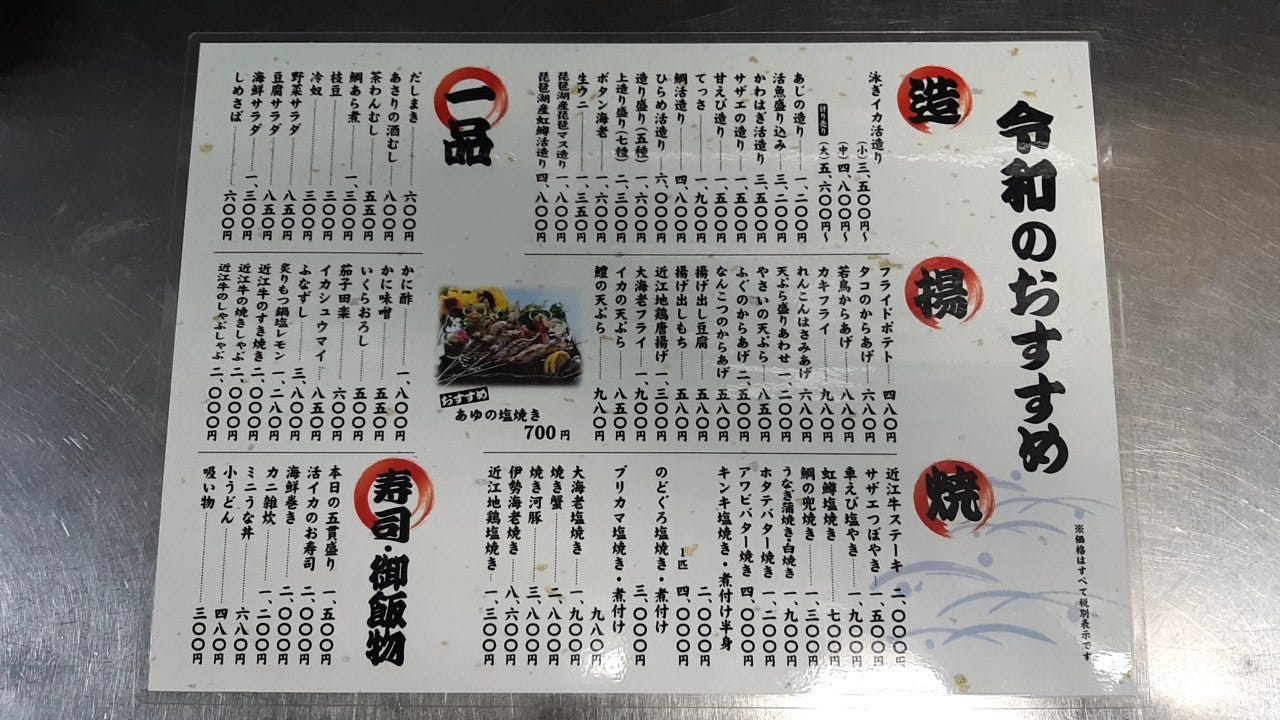 令和のおすすめ
※価格はすべて税別表示です
造
泳ぎイカ活造り
(小)三、五〇〇円～
(中)四、八〇〇円～
(大)五、六〇〇円～
あじの造り 一、二〇〇円
活魚盛り込み 三、二〇〇円
かわはぎ活造り 三、五〇〇円
サザエの造り 一、五〇〇円
甘えび造り 一、五〇〇円
てっさ 一、九〇〇円
鯛活造り 四、八〇〇円
ひらめ活造り 六、〇〇〇円
造り盛り(五種) 一、六〇〇円
上造り盛り(七種) 二、三〇〇円
ボタン海老 一、六〇〇円
生ウニ 一、三五〇円
琵琶湖産琵琶マス造り 一、八〇〇円
琵琶湖産虹鱒活造り 四、八〇〇円
一品
だしまき 六〇〇円
あさりの酒むし 八〇〇円
茶わんむし 五五〇円
鯛あら煮 一、三〇〇円
枝豆 三〇〇円
冷奴 三〇〇円
野菜サラダ 八五〇円
豆腐サラダ 八五〇円
海鮮サラダ 一、三〇〇円
しめさば 六〇〇円
かに酢 一、八〇〇円
かに味噌 五五〇円
いくらおろし 五〇〇円
茄子田楽 六〇〇円
イカシュウマイ 八五〇円
ふなずし 三、八〇〇円
炙りもつ鍋塩レモン 一、二八〇円
近江牛のすき焼き 二、〇〇〇円
近江牛の焼きしゃぶ 二、〇〇〇円
近江牛のしゃぶしゃぶ 二、〇〇〇円
揚
フライドポテト 四八〇円
タコのからあげ 六八〇円
若鳥からあげ 八八〇円
カキフライ 九八〇円
れんこんはさみあげ 六八〇円
天ぷら盛りあわせ 一、二〇〇円
やさいの天ぷら 八五〇円
ふぐのからあげ 二、五〇〇円
なんこつのからあげ 五八〇円
揚げ出し豆腐 五八〇円
揚げ出しもち 五八〇円
近江地鶏唐揚げ 一、三〇〇円
大海老フライ 一、九〇〇円
イカの天ぷら 八五〇円
鱧の天ぷら 九八〇円
おすすめ
あゆの塩焼き
700円
焼
近江牛ステーキ 二、〇〇〇円
サザエつぼやき 一、五〇〇円
車えび塩やき 一、九〇〇円
虹鱒塩焼き 七〇〇円
鯛の兜焼き 一、三〇〇円
うなぎ蒲焼き・白焼き 一、九〇〇円
ホタテバター焼き 一、二〇〇円
アワビバター焼き 四、〇〇〇円
キンキ塩焼き・煮付け半身
二、〇〇〇円
1匹 四、〇〇〇円
のどぐろ塩焼き・煮付け
三、〇〇〇円
ブリカマ塩焼き・煮付け
九八〇円
大海老塩焼き 一、九〇〇円
焼き蟹 二、八〇〇円
焼き河豚 三、八〇〇円
伊勢海老焼き 八、六〇〇円
近江地鶏塩焼き 一、三〇〇円
寿司・御飯物
本日の五貫盛り 一、五〇〇円
活イカのお寿司 二、〇〇〇円
海鮮巻き 二、〇〇〇円
カニ雑炊 一、二〇〇円
ミニうな丼 六八〇円
小うどん 四八〇円
吸い物 三〇〇円